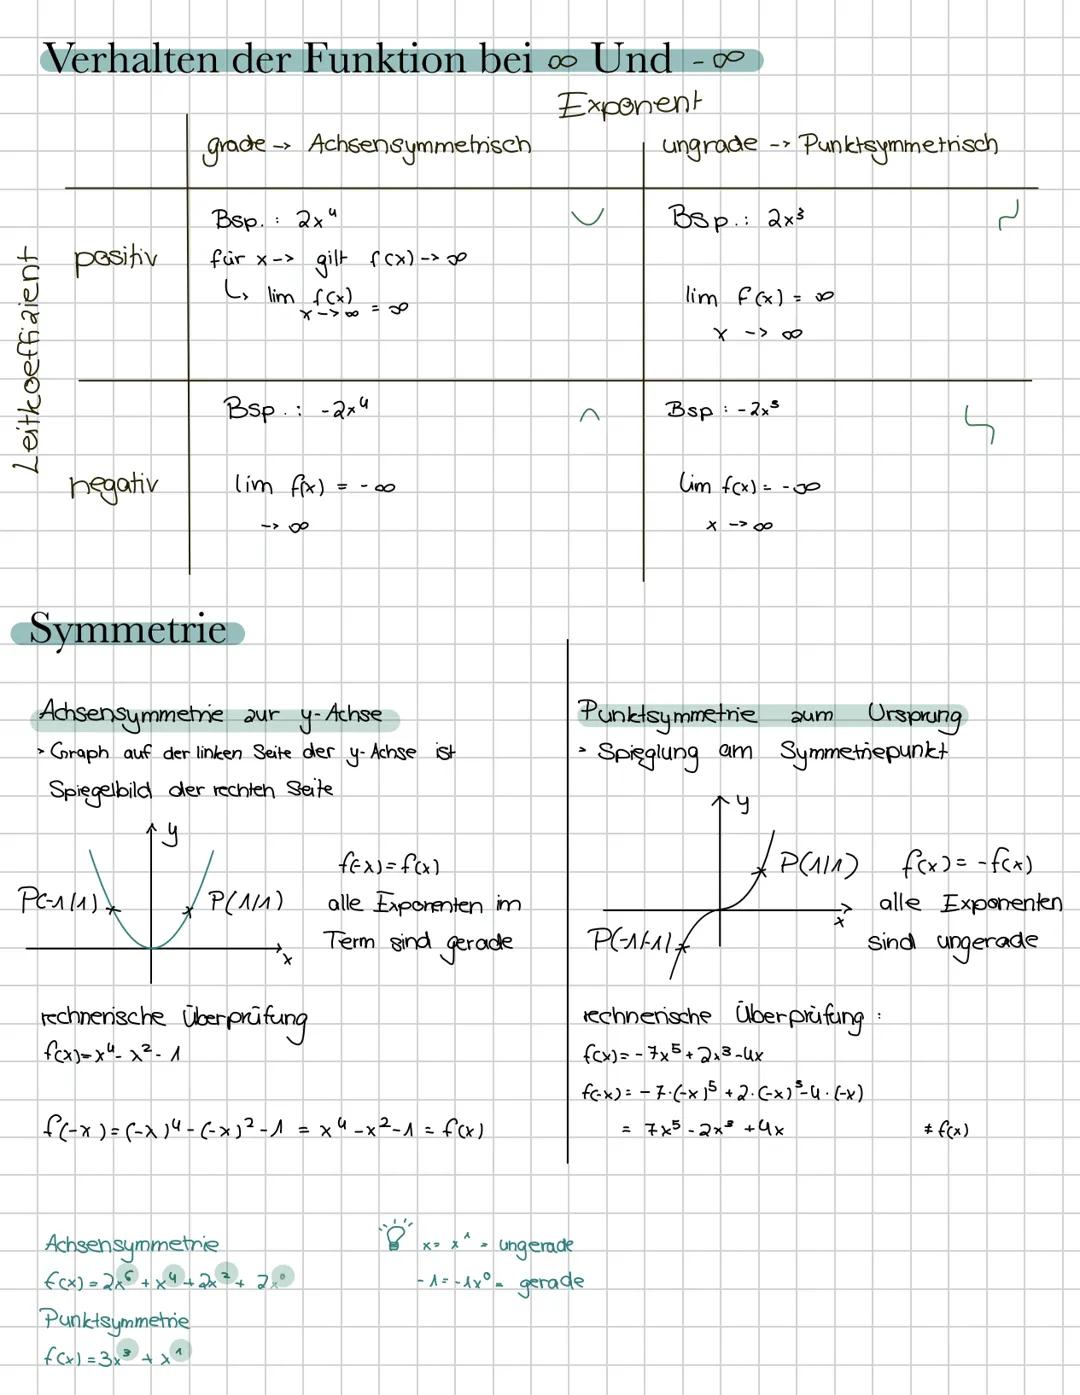 Verhalten der Funktion bei ∞ Und -∞
Exponent
grade -> Achsensymmetrisch
ungrade -> Punktsymmetrisch
Leitkoeffizient
positiv
Bsp.: 2x⁴
für x-> gilt f(x) -> ∞
↳ lim f(x) = ∞
x -> ∞
Bsp.: 2x³
lim f(x) = ∞
x -> ∞
negativ
Bsp.: -2x⁴
lim f(x) = -∞
-> ∞
Bsp: -2x³
lim f(x) = -∞
x -> ∞
Symmetrie
Achsensymmetrie zur y-Achse
> Graph auf der linken Seite der y-Achse ist
Spiegelbild der rechten Seite
y
P(-1|1)
P(1|1)
x
f(-x)=f(x)
alle Exponenten im
Term sind gerade
rechnerische Überprüfung
f(x)=x⁴-x²-1
f(-x)=(-x)⁴-(-x)²-1 = x⁴-x²-1 = f(x)
Punktsymmetrie zum Ursprung
> Spieglung am Symmetriepunkt
y
P(1|1)
x
P(-1|-1)
f(x) = -f(x)
alle Exponenten
sind ungerade
rechnerische Überprüfung:
f(x)= -7x⁵+2x³-4x
f(-x)= -7·(-x)⁵+2·(-x)³-4·(-x)
= 7x⁵-2x³+4x ≠ f(x)
Achsensymmetrie
f(x)=2x⁶+x⁴+2x²+2x⁰
Punktsymmetrie
f(x)=3x³+x¹
x= x¹ = ungerade
-1=-1x⁰= gerade